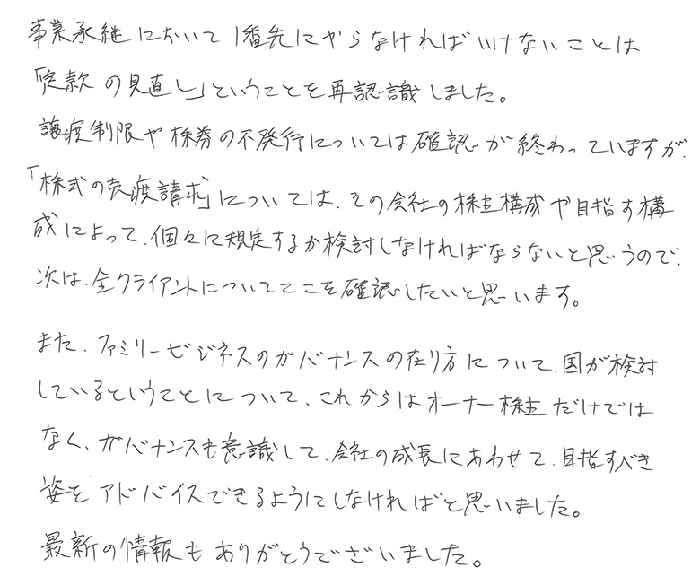 事業承継において1番先にやらなければいけないことは
「定款の見直し」ということを再認識しました。
譲渡制限や株券の不発行については確認が終わっていますが、
「株式の売渡請求」については、その会社の株主構成や目指す構
成によって、個々に規定するか検討しなければならないと思うので、
次は、全クライアントについてここを確認したいと思います。
また、ファミリービジネスのガバナンスの在り方について、国が検討
しているということについて、これからはオーナー株主だけでは
なく、ガバナンスも意識して、会社の成長にあわせて、目指すべき
姿をアドバイスできるようにしなければと思いました。
最新の情報もありがとうございました。